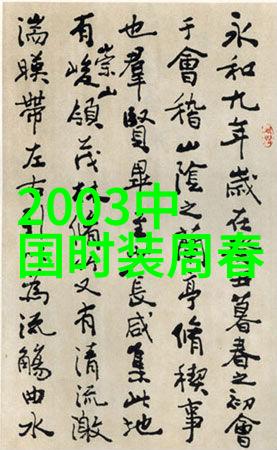 2003中
国时装周春
永和九年歲在丑暮春之初會
于會稽山陰之蘭亭脩稧事
也羣賢畢長咸集此地
有崇山峻領茂又有清流激
湍暎帶左右為流觴曲水